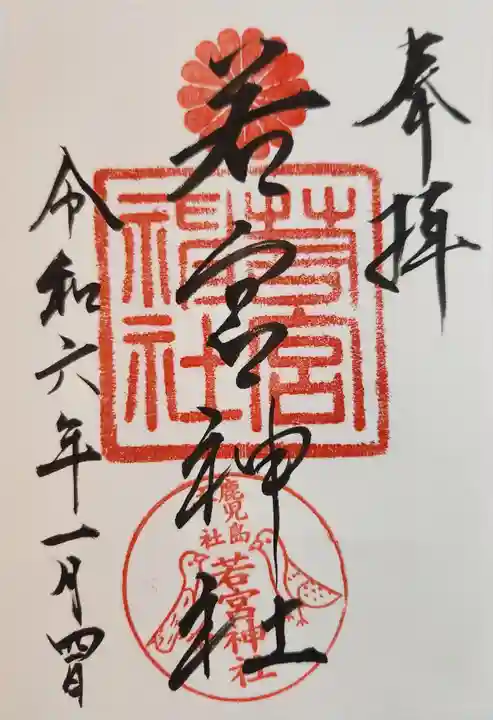 奉拝
若宮神社
若宮神社
鹿児島
社
若宮神社
令和六年一月四日